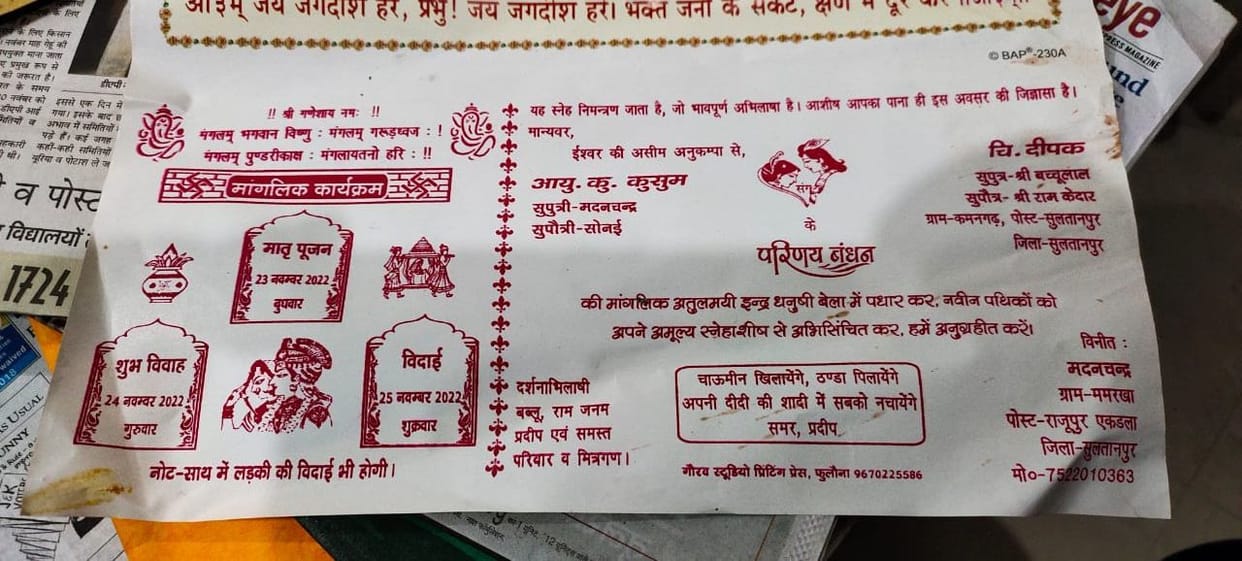 ओ३म् जय जगदीश हरे, प्रभु! जय जगदीश हरे। भक्त जनों के संकट, क्षण में दूर करे
© BAP®-230A
!! श्री गणेशाय नमः !!
मंगलम् भगवान विष्णु : मंगलम् गरूड़ध्वज : !
मंगलम् पुण्डरीकाक्ष : मंगलायतनो हरि : !!
मांगलिक कार्यक्रम
मातृ पूजन
23 नवम्बर 2022
बुधवार
शुभ विवाह
24 नवम्बर 2022
गुरुवार
विदाई
25 नवम्बर 2022
शुक्रवार
नोट-साथ में लड़की की विदाई भी होगी।
यह स्नेह निमन्त्रण जाता है, जो भावपूर्ण अभिलाषा है। आशीष आपका पाना ही इस अवसर की जिज्ञासा है।
मान्यवर,
ईश्वर की असीम अनुकम्पा से,
आयु. कु. कुसुम
सुपुत्री-मदनचन्द्र
सुपौत्री-सोनई
संग
चि. दीपक
सुपुत्र-श्री बच्चूलाल
सुपौत्र- श्री राम केदार
ग्राम-कमनगढ़, पोस्ट-सुलतानपुर
जिला-सुलतानपुर
के
परिणय बंधन
की मांगलिक अतुलमयी इन्द्र धनुषी बेला में पधार कर, नवीन पथिकों को
अपने अमूल्य स्नेहाशीष से अभिसिंचित कर, हमें अनुग्रहीत करें।
दर्शनाभिलाषी
बब्लू, राम जनम
प्रदीप एवं समस्त
परिवार व मित्रगण।
चाऊमीन खिलायेंगे, ठण्डा पिलायेंगे
अपनी दीदी की शादी में सबको नचायेंगे
समर, प्रदीप
गौरव स्टूडियो प्रिंटिंग प्रेस, फुलौना 9670225586
विनीत :
मदनचन्द्र
ग्राम-ममरखा
पोस्ट-राजूपुर एकडला
जिला-सुलतानपुर
मो०-7522010363
व पोस्ट
विद्यालयों
1724
eye
PRESS MAGAZINE